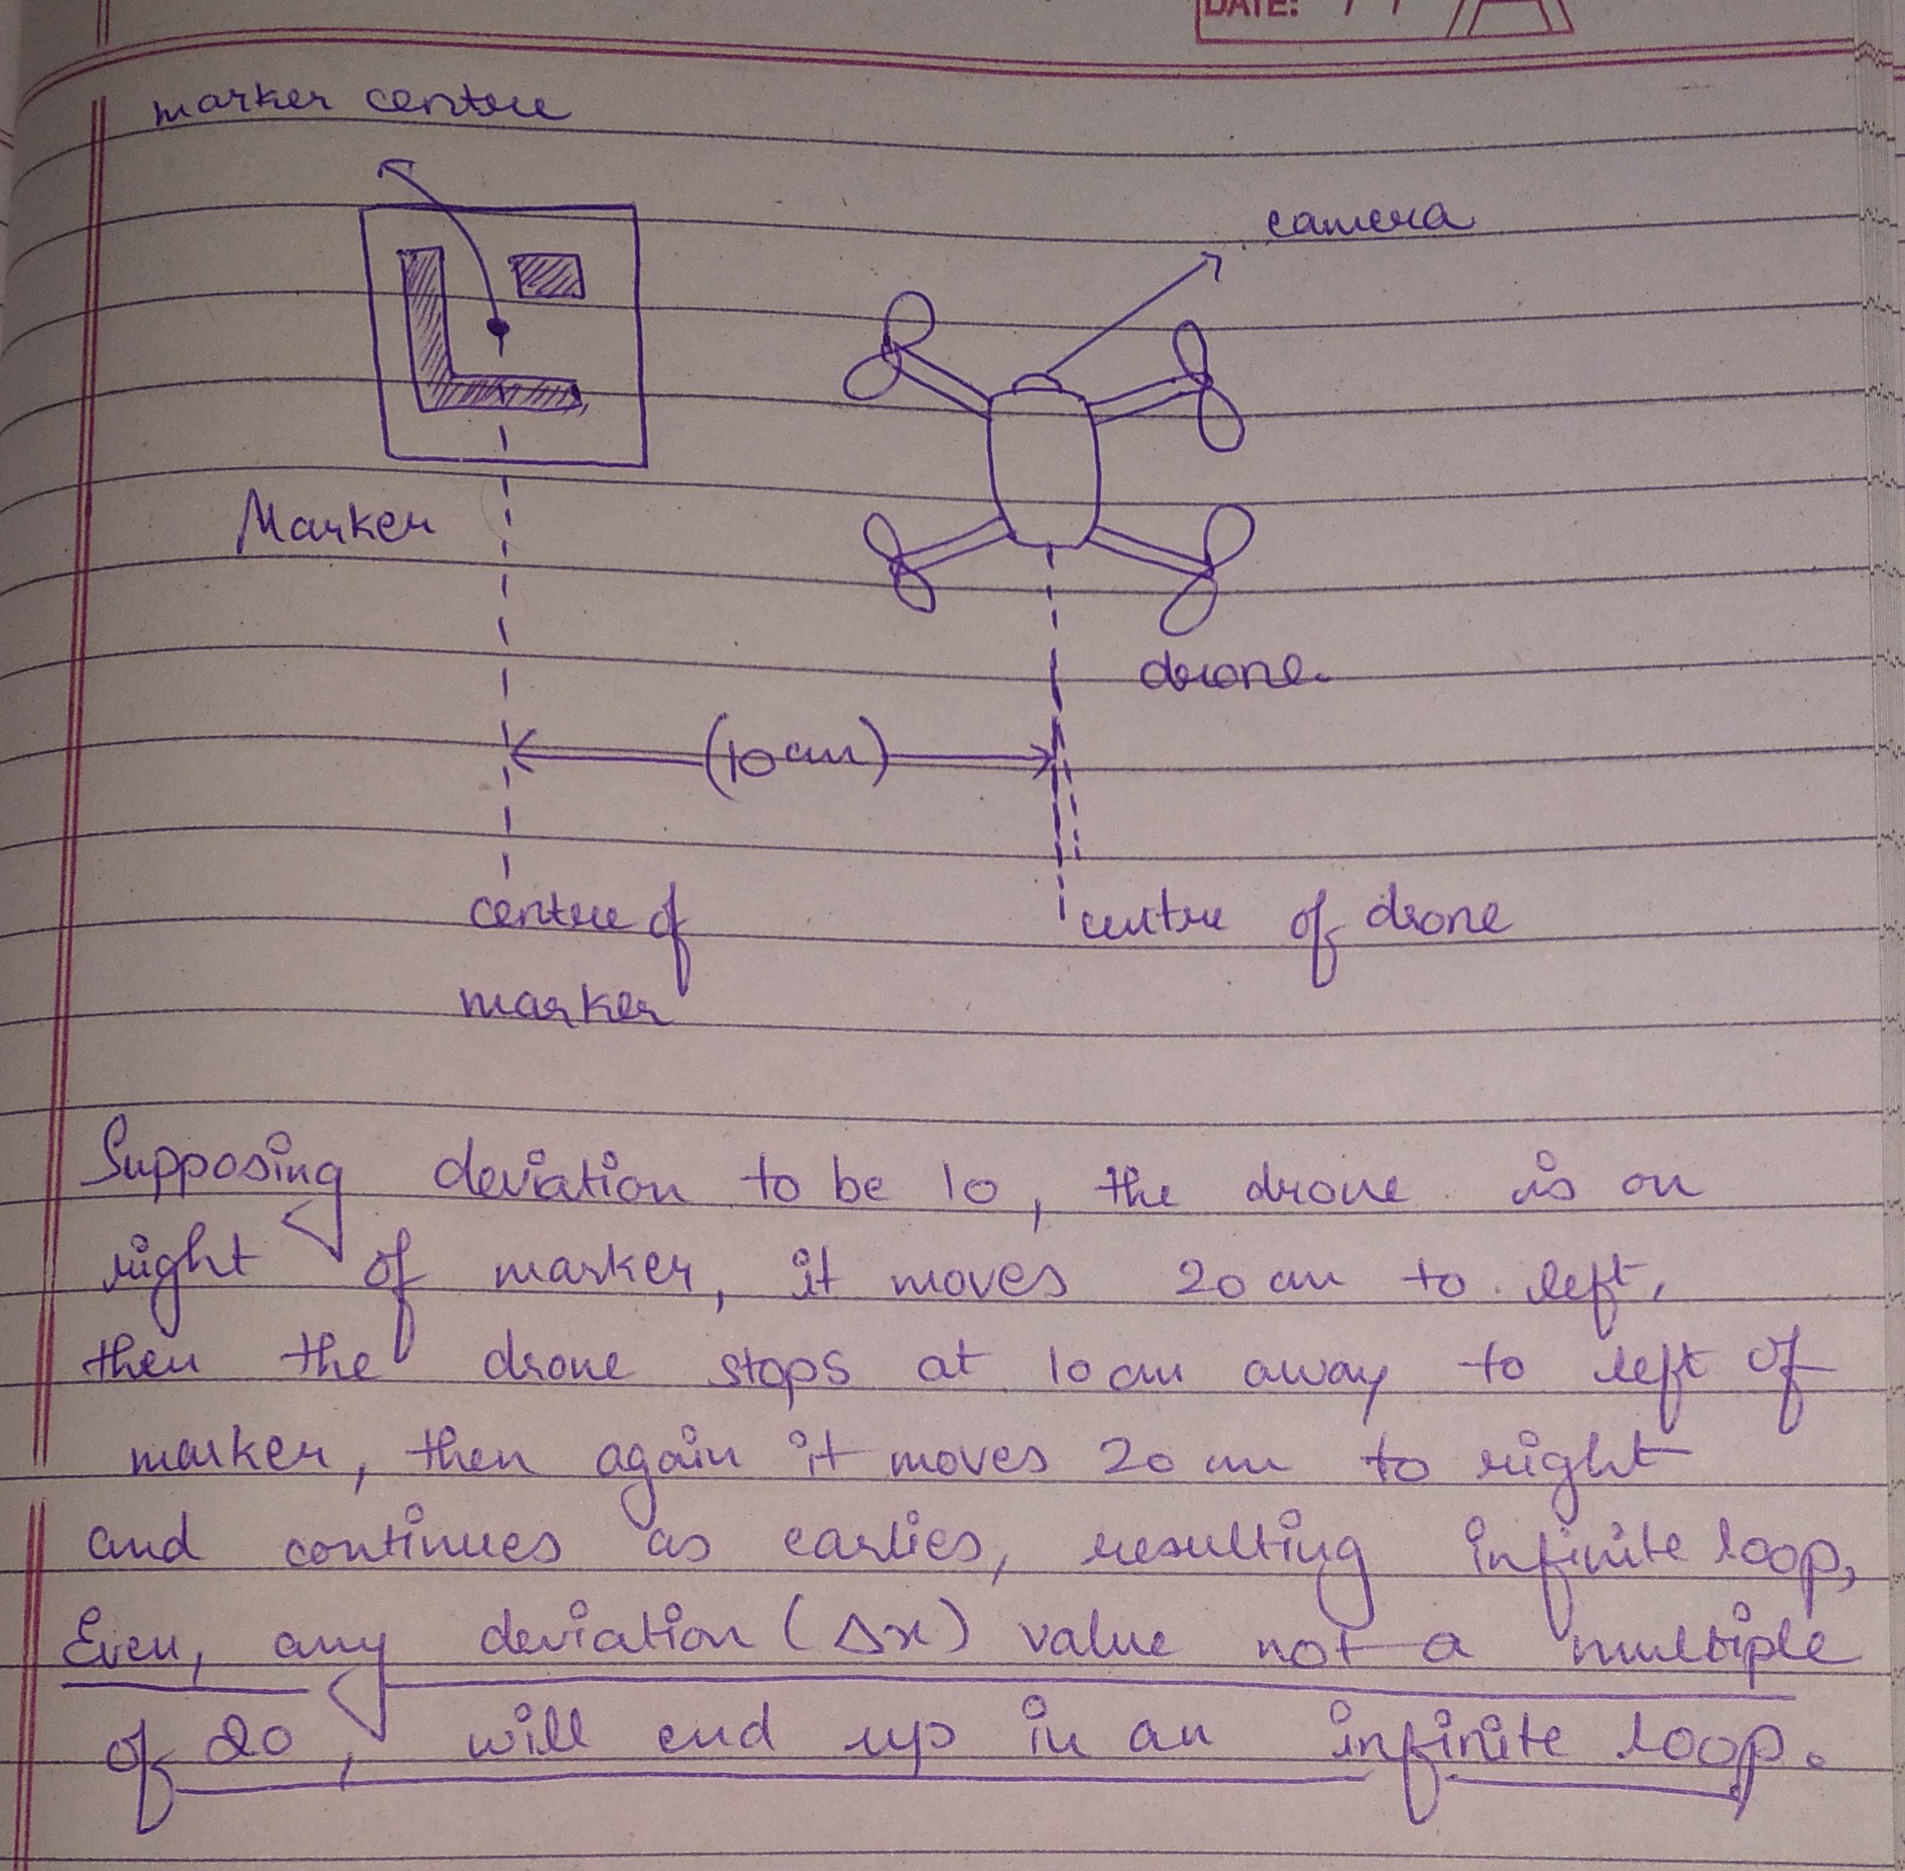 DATE:
marker centre
camera
Marker
drone.
(10 cm)
centre of
marker
centre of drone
Supposing deviation to be 10, the drone is on
right of marker, it moves 20 cm to left,
then the drone stops at 10 cm away to left of
marker, then again it moves 20 cm to right
and continues as earlies, resulting infinite loop,
Even, any deviation (Δx) value not a multiple
of 20, will end up in an infinite loop.